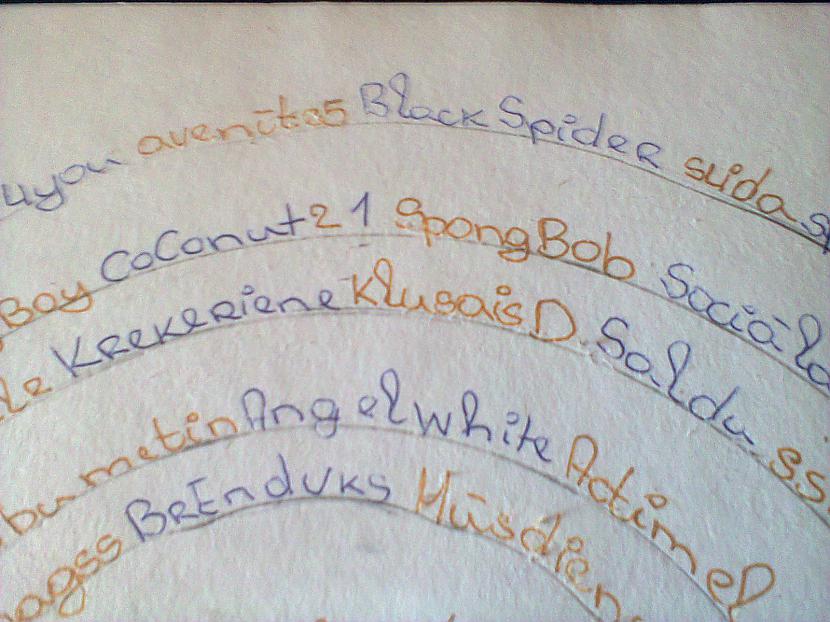 avenītas BlackSpider suida
Boy CoConut21 SpongBob Sociāla
KREKERiene KlusaisD Saldu ss
bumetin Angelwhite Actimel
BRENDUKS Mūsdien